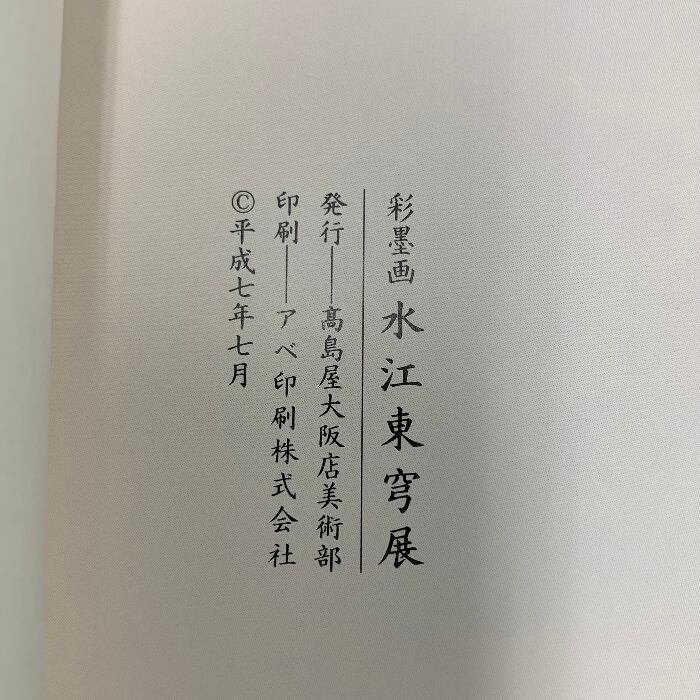 彩墨画 水江東穹展
発行──髙島屋大阪店美術部
印刷──アベ印刷株式会社
©平成七年七月